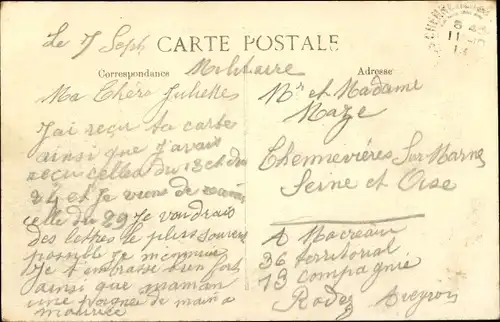 Le 7 Sept CARTE POSTALE
Correspondance Militaire Adresse
Ma Chère Juliette
J'ai reçu ta carte
ainsi que j'avais
reçu celles du 13 et du
24 et Je viens de
celle du 29 Je voudrais
des lettres le plus souvent
possible je
Je t embrasse bien fort
ainsi que maman
une poignée de main a
maurice
Mr et Madame
Maze
Chennevières Sur Marne
Seine et Oise
A Macreau
36 territorial
13 compagnie
Rodez Aveyron
CHENNEVIÈRES
11